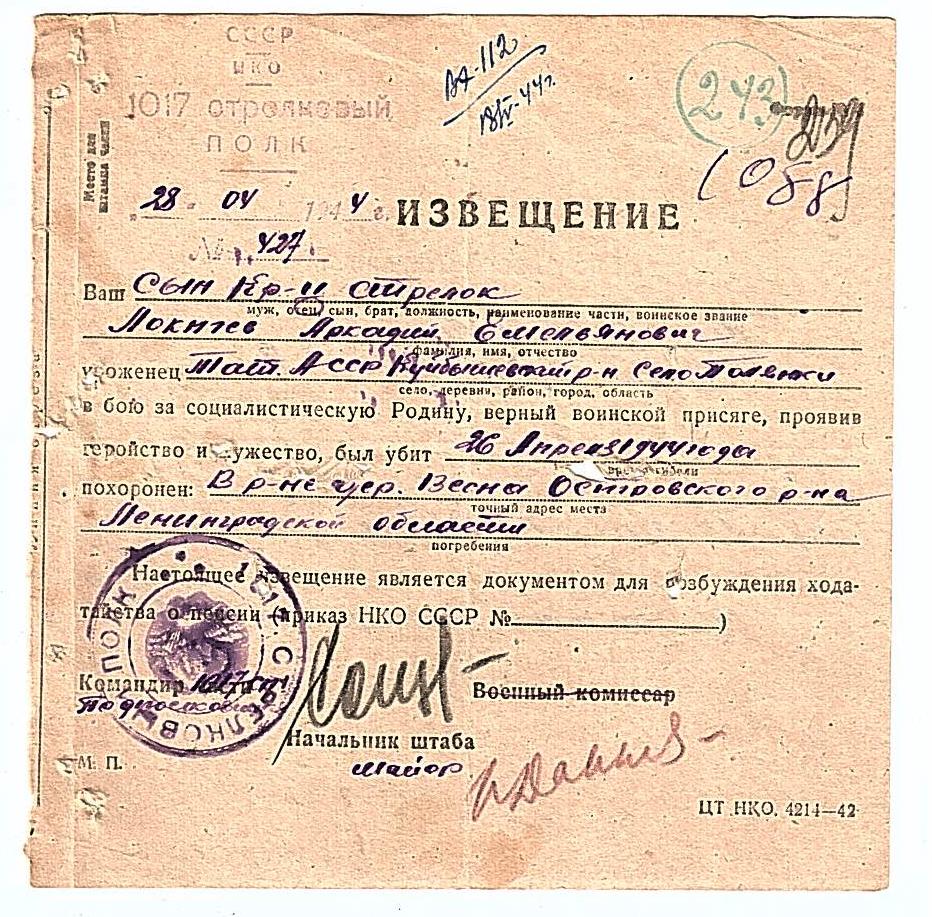 СССР
НКО
1017 стрелковый
ПОЛК
ВА-112
18/IV-44г.
243
Место для
штампа части
"28" 04 1944 г. ИЗВЕЩЕНИЕ
№ 427
Ваш Сын Кр-ц стрелок
муж, отец, сын, брат, должность, наименование части, воинское звание
Аркадий Емельянович
фамилия, имя, отчество
уроженец Тат. АССР Куйбышевский р-н Село Полянки
село, деревни, район, город, область
в бою за социалистическую Родину, верный воинской присяге, проявив
геройство и мужество, был убит 26 Апреля 1944 года
время гибели
похоронен: В р-не дер. Весна Островского р-на
точный адрес места
Ленинградской области
погребения
Настоящее извещение является документом для возбуждения хода-
тайства о пенсии (приказ НКО СССР № )
Командир 1017 сп Военный комиссар
Подполковник
Начальник штаба
М. П. майор
ЦТ НКО. 4214—42